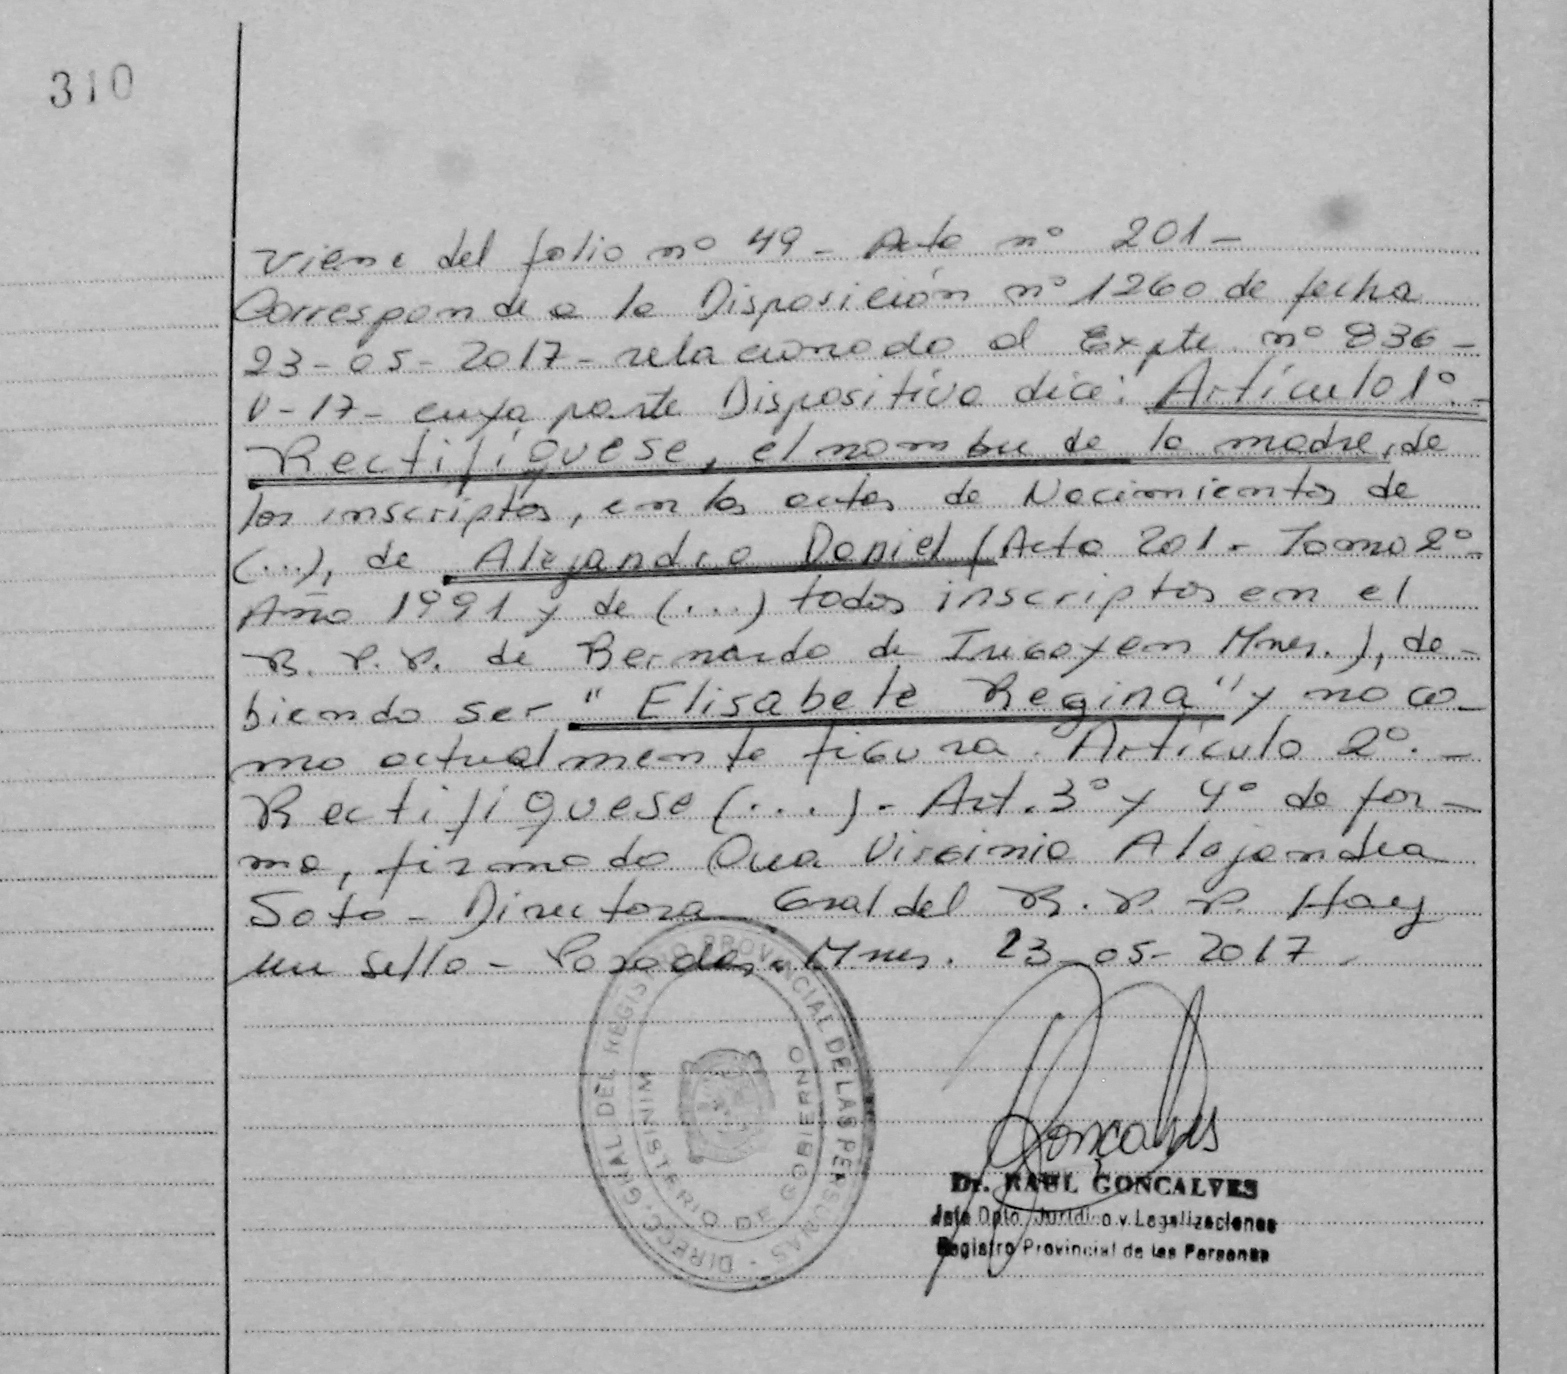 310
Viene del folio nº 49 - Acta nº 201 -
Corresponde a la Disposición nº 1260 de fecha
23-05-2017- relacionado al Expte nº 836 -
V-17- cuya parte Dispositiva dice: Artículo 1º.-
Rectifíquese, el nombre de la madre, de
los inscriptos, en las actas de Nacimientos de
(...), de Alejandro Daniel (Acta 201 - Tomo 2º-
Año 1991 y de (...) todos inscriptos en el
R. P. P. de Bernardo de Irigoyen Mnes.), de-
biendo ser "Elisabete Regina" y no co-
mo actualmente figura. Artículo 2º. -
Rectifíquese (....). Art. 3º y 4º de for-
ma, firmado Dra Virginia Alejandra
Soto - Directora Gral del R. P. P. Hay
un sello - Posadas. Mnes. 23-05-2017.
DIRECC. GRAL DEL REGISTRO PROVINCIAL DE LAS PERSONAS -
MINISTERIO DE GOBIERNO
Goncalves
Dr. RAUL GONCALVES
Jefe Dpto. Jurídico y Legalizaciones
Registro Provincial de las Personas